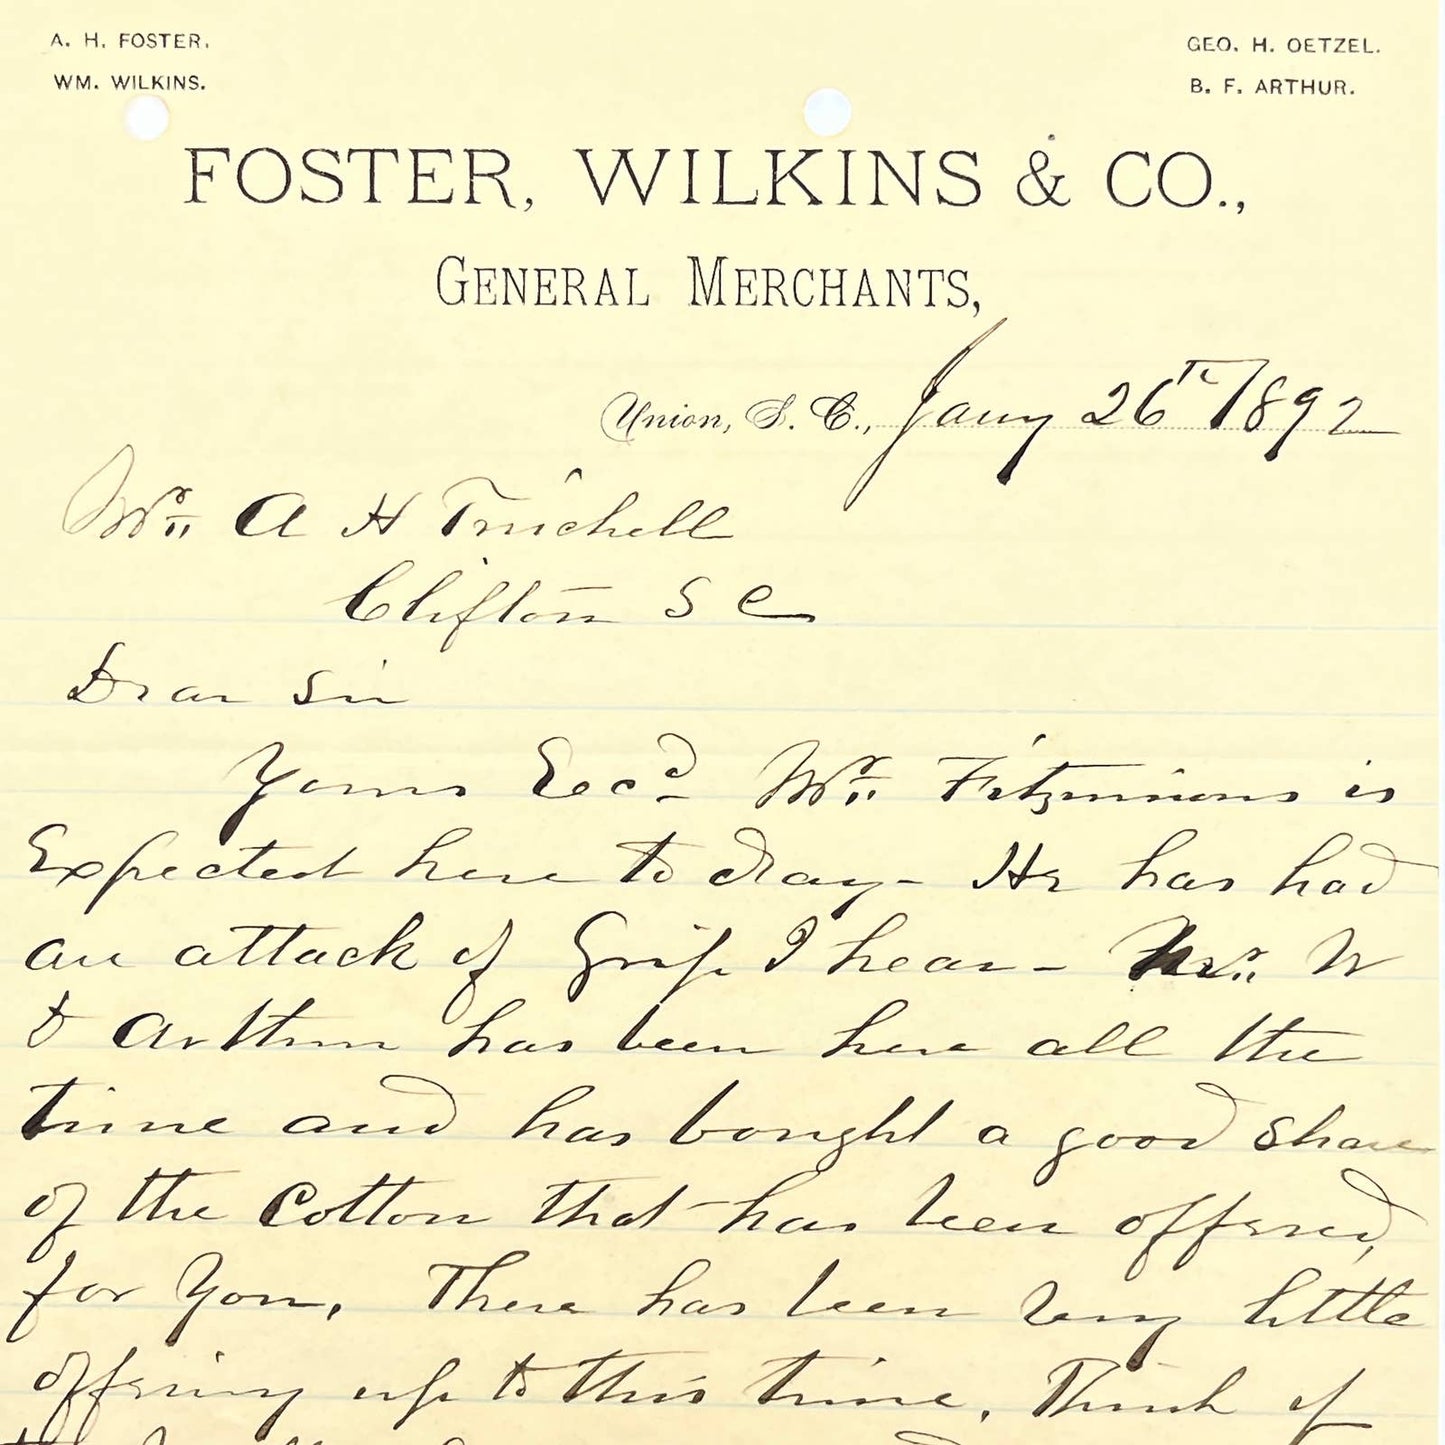 A. H. FOSTER.
WM. WILKINS.
GEO. H. OETZEL.
B. F. ARTHUR.
FOSTER, WILKINS & CO.,
GENERAL MERCHANTS,
Union, S. C., Jany 26th 1892
Mr. A H Twichell
Clifton S C
Dear Sir
Yours Recd Mr. Fitzsimons is
Expected here to day - He has had
an attack of Grip I hear - Mr. W
D Arthur has been here all the
time and has bought a good share
of the Cotton that has been offered,
for You, There has been very little
offering up to this time, Think if